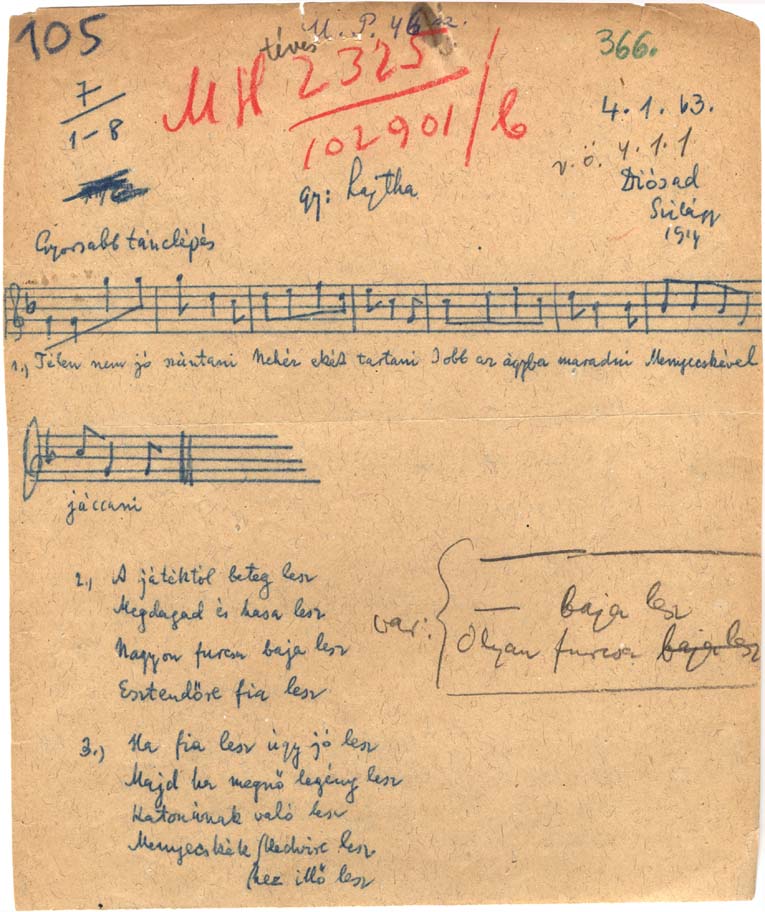 105
M. P. 46
téves
366.
7
1-8
MH 2325
102901/b
4. 1. 63.
v. ö. 4. 1. 1
gy: Lajtha
Diósad
Szilágy
1914
Gyorsabb tánclépés
1.) Télen nem jó szántani Nehéz ekét tartani Jobb az ágyba maradni Menyecskével
jáccani
2.) A játéktól beteg lesz
Megdagad és hasa lesz
Nagyon furcsa baja lesz
Esztendőre fia lesz
var:
baja lesz
Olyan furcsa baja lesz
3.) Ha fia lesz úgy jó lesz
Majd ha megnő legény lesz
Katonának való lesz
Menyecskék kedvire lesz
hez illő lesz